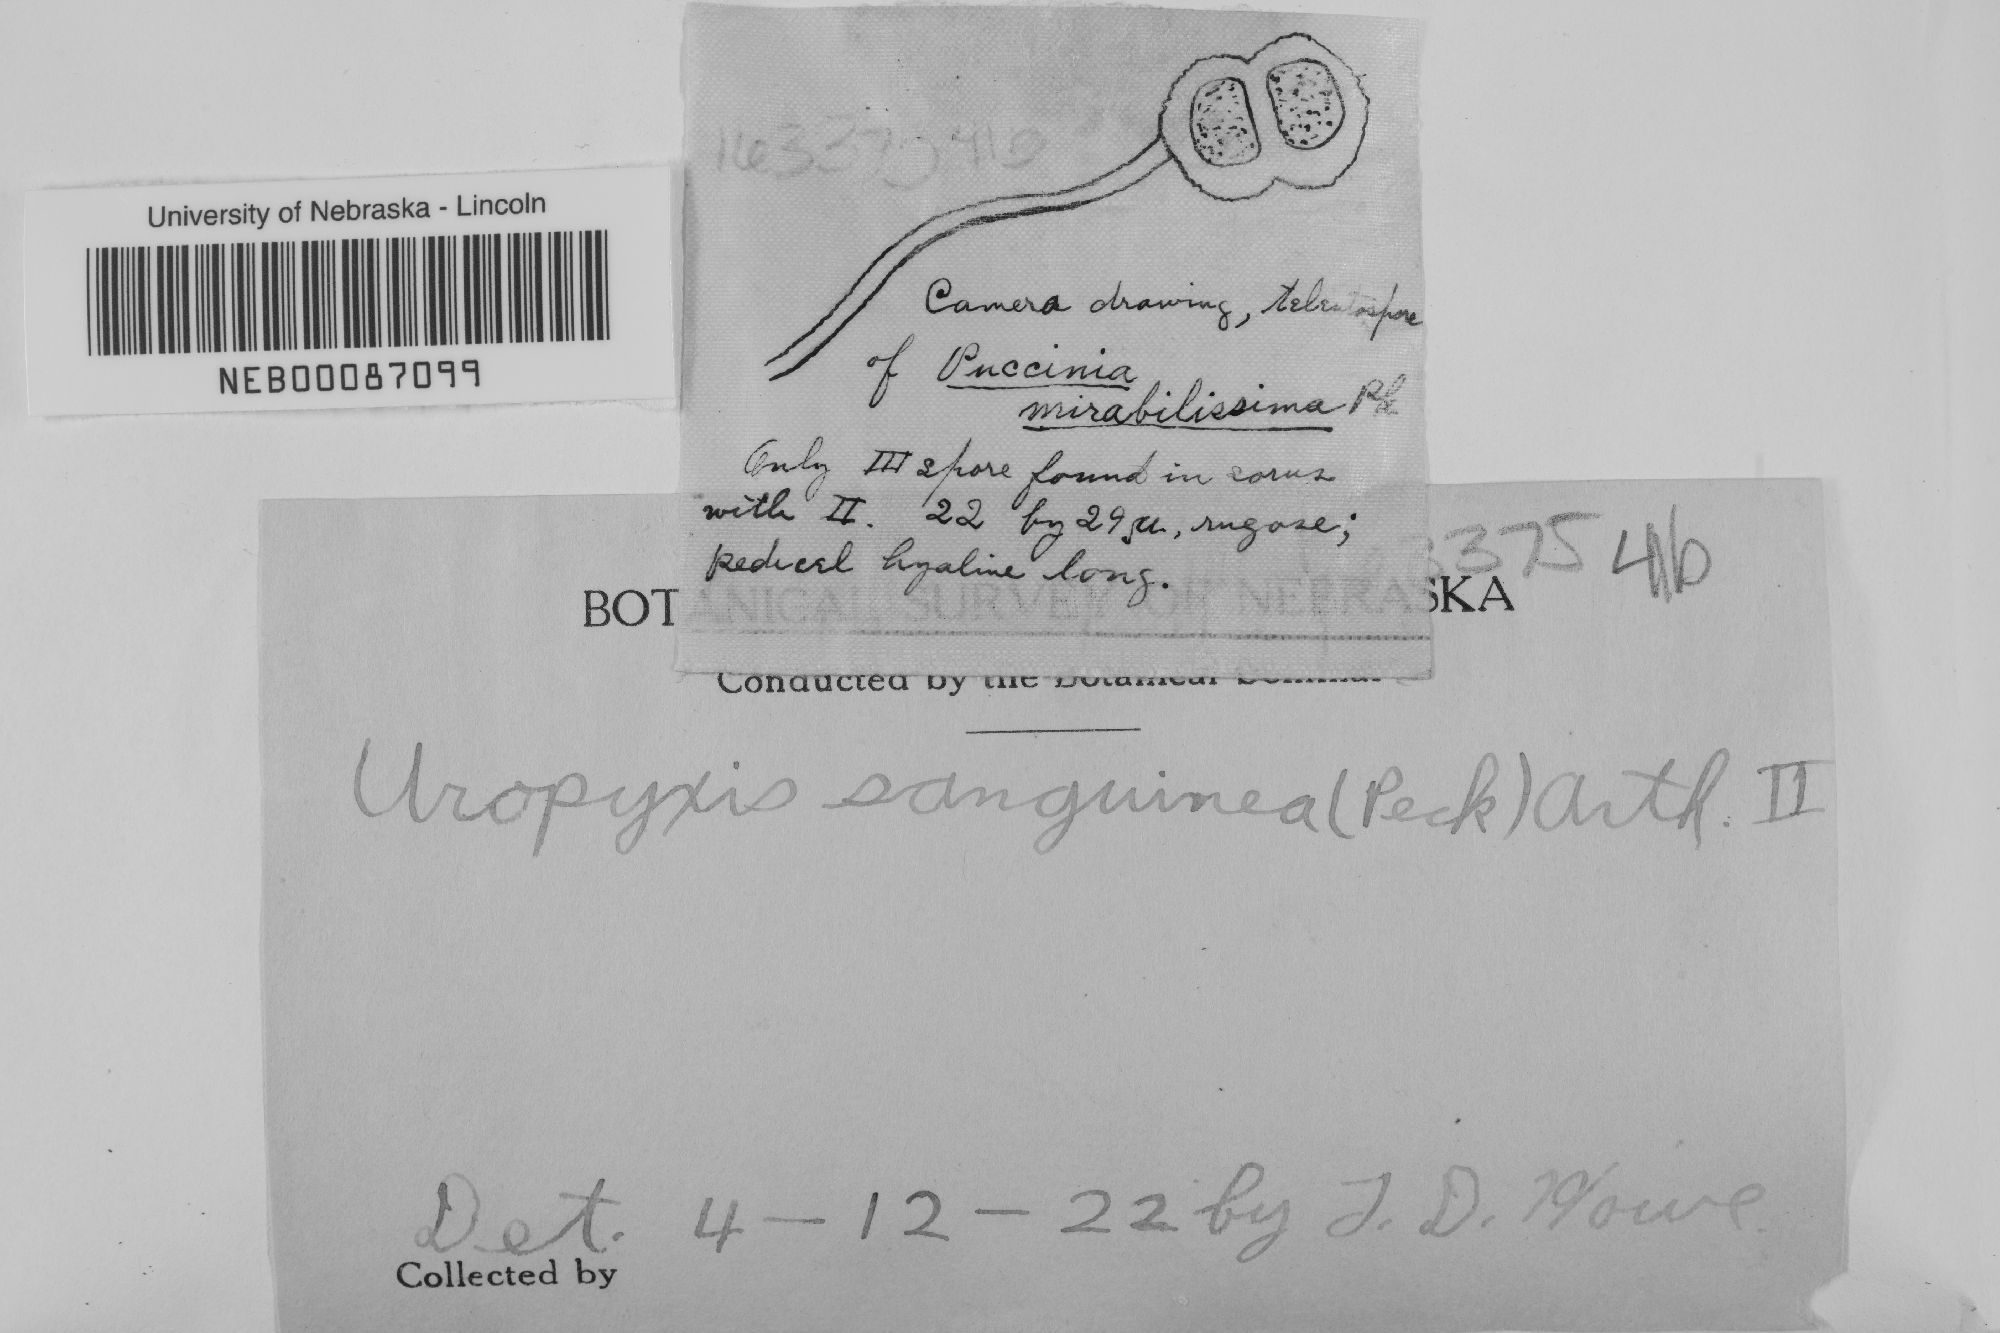 University of Nebraska - Lincoln
NEB00087099
Camera drawing, teleutospore
of Puccinia
mirabilissima Pk
Only III spore found in sorus
with II. 22 by 29 µ, rugose;
pedicel hyaline long.
3375 416
BOTANICAL SURVEY OF NEBRASKA
Conducted by the Botanical Seminar
Uropyxis sanguinea (Peck) Arth. II
Det. 4-12-22 by J. D. Howe
Collected by